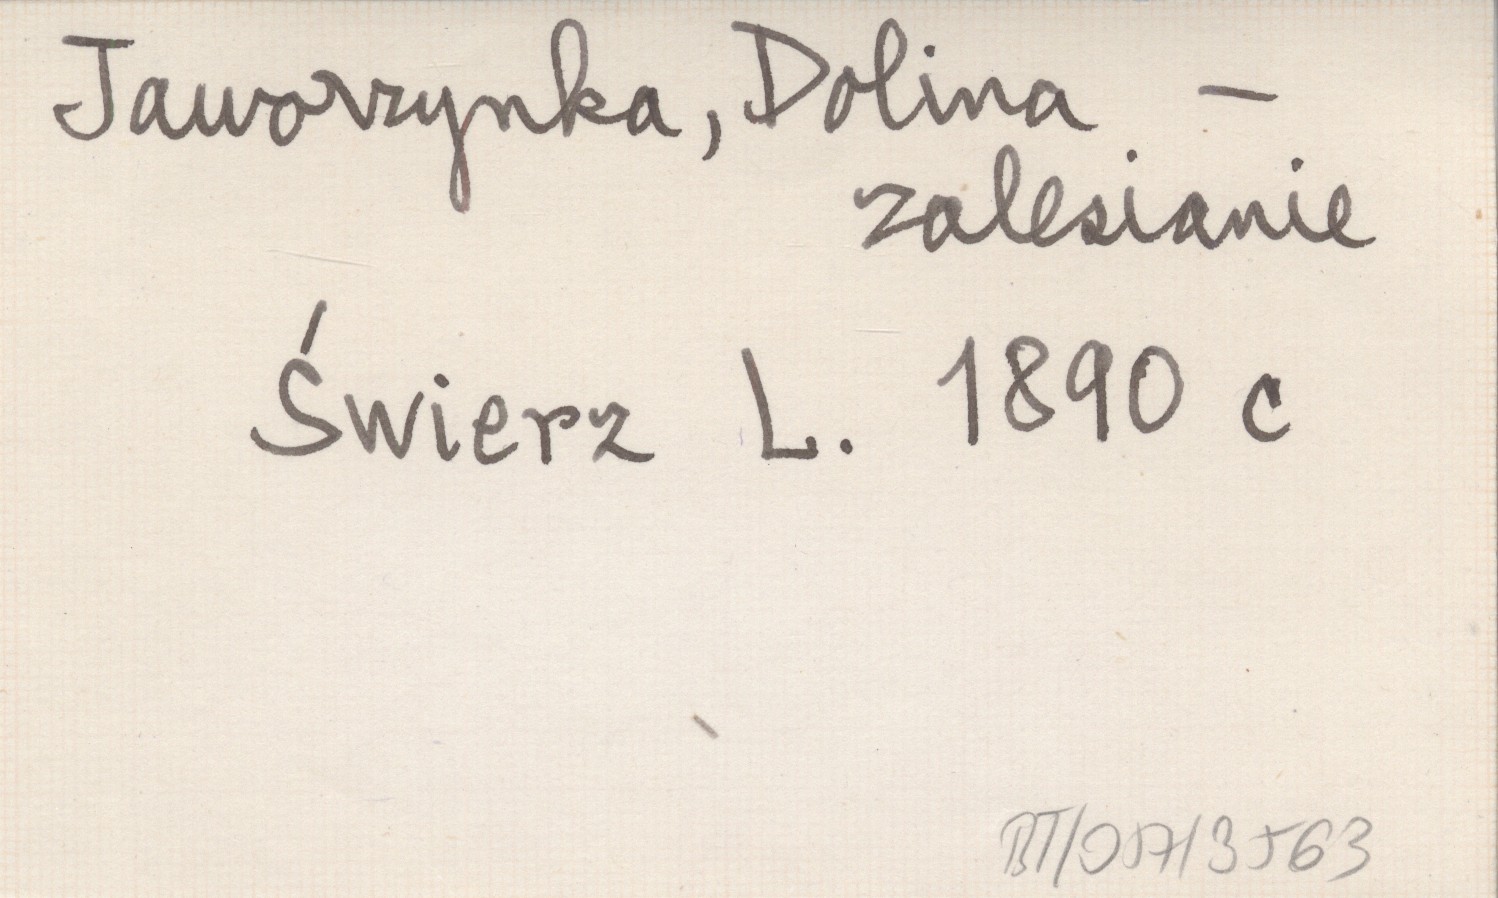 Jaworzynka, Dolina –
zalesianie
Świerz L. 1890 c
BT/057/3563